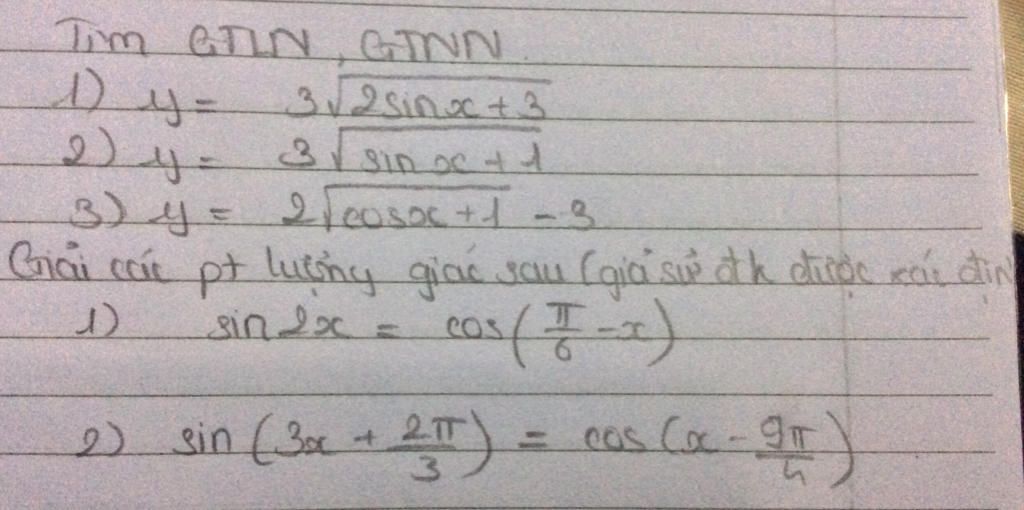 Tìm GTLN, GTNN.
1) y = 3√(2sinx + 3)
2) y = 3√(sinx + 1)
3) y = 2√(cosx + 1) - 3
Giải các pt lượng giác sau (giả sử đk được xác địn
1) sin2x = cos(π/6 - x)
2) sin(3x + 2π/3) = cos(x - 9π/4)